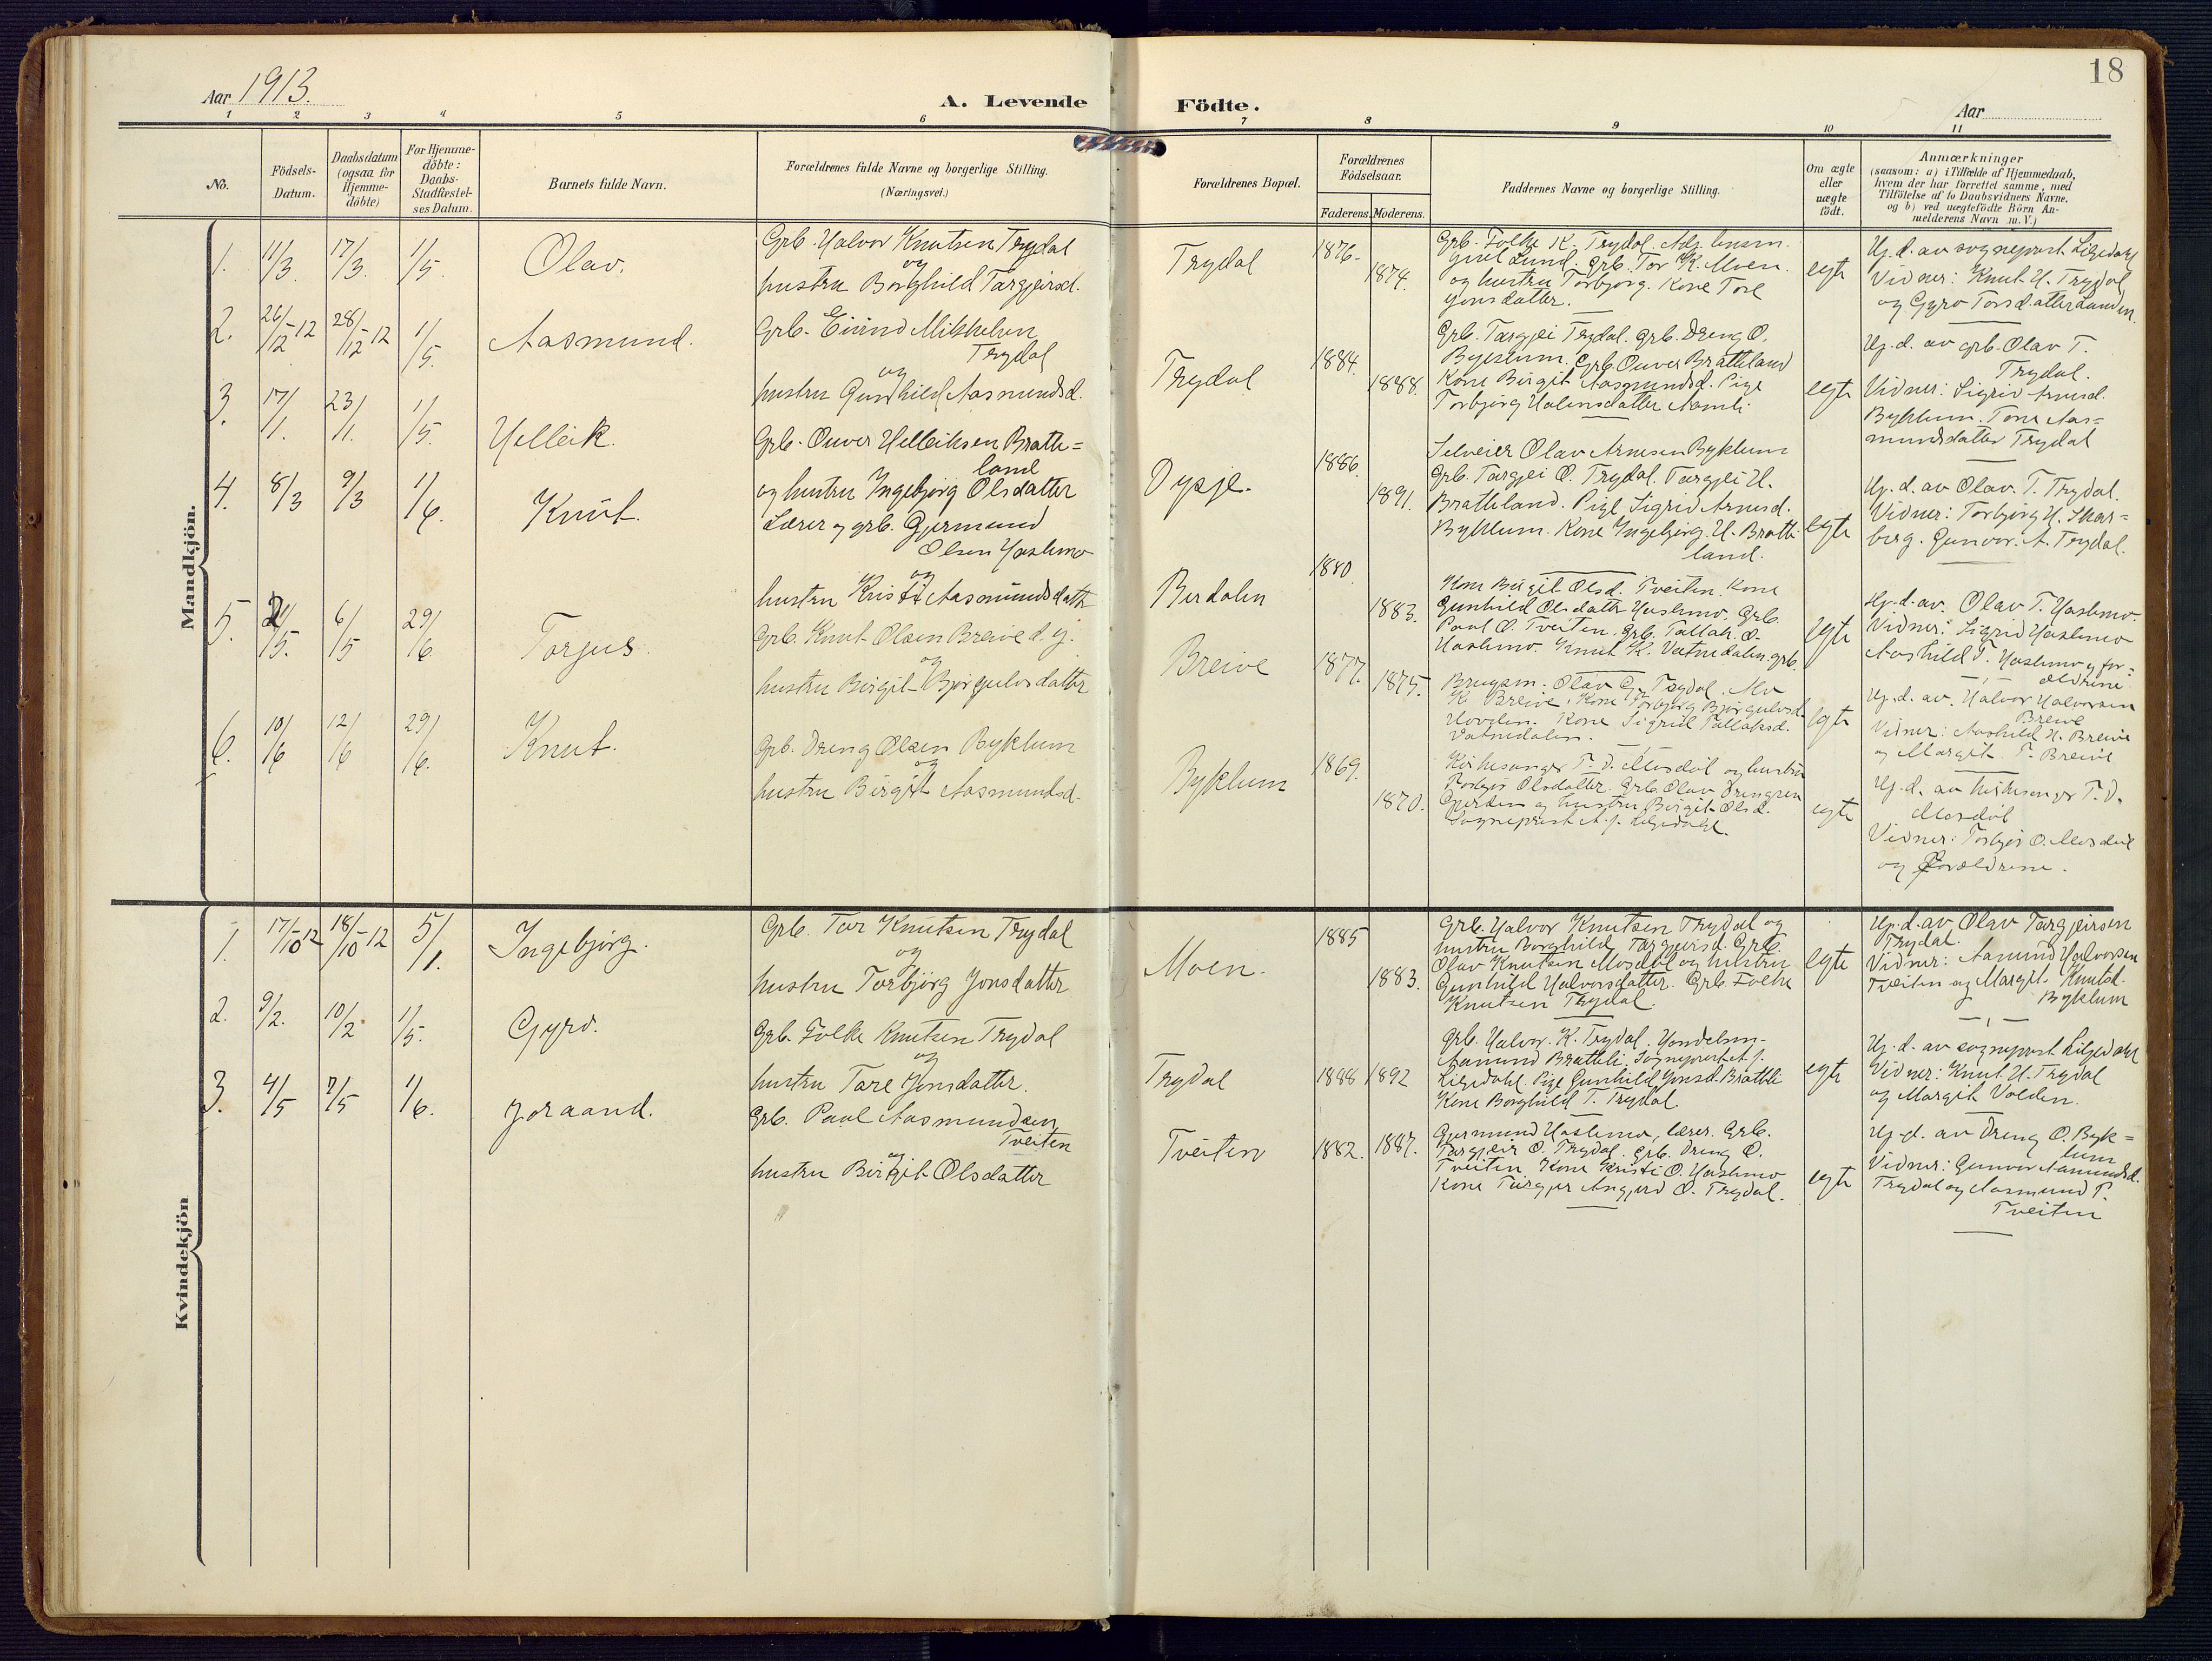 18
Aar 1913.
A. Levende Födte.
Aar
1 2 3 4 5 6 7 8 9 10 11
No.
Födsels-
Datum.
Daabsdatum
(ogsaa for
Hjemme-
döbte)
For Hjemme-
döbte:
Daabs-
Stadfæstel-
ses Datum.
Barnets fulde Navn.
Forældrenes fulde Navne og borgerlige Stilling.
(Næringsvei.)
Forældrenes Bopæl.
Forældrenes
Födselsaar.
Faderens. Moderens.
Faddernes Navne og borgerlige Stilling.
Om ægte
eller
uægte
födt.
Anmærkninger
(saasom: a) i Tilfælde af Hjemmedaab,
hvem der har forrettet samme, med
Tilföielse af to Daabsvidners Navne,
og b) ved uægtefödte Börn An-
melderens Navn m. V.)
Mandkjön.
1. 11/3. 17/3. 1/5. Olav.
Grb. Halvor Knutsen Trydal
og
hustru Borghild Targjeirsd.
Trydal 1876. 1874.
Grb. Folke K. Trydal.
Lund. Grb. Tor K. Moen.
og hustru Torbjorg. Kone Tore
Jonsdatter.
egte
Hj. d. av sogneprest Liljedahl
Vidner: Knut H. Trydal
og Gyro Torsdatter Lunden.
2. 26/12-12 28/12-12 1/5. Aasmund.
Grb. Eivind Mikkelsen
Trydal
og
hustru Gunhild Aasmundsd.
Trydal 1884. 1888.
Grb. Targjei Trydal. Grb. Dreng O.
Byklum. Grb. Ouver Bratteland
Kone Birgit Aasmundsd. Pige
Torbjorg Halvorsdatter
egte
Hj. d. av grb. Olav T.
Trydal.
Vidner: Sigrid Arnesd.
Byklum. Tone Aas=
mundsdatter Trydal
3. 17/1. 23/1. 1/5. Helleik.
Grb. Ouver Helleiksen Bratte=
land
og hustru Ingebjorg Olsdatter
1886. 1891.
Selveier Olav Arnesen Byklum
Grb. Targjei O. Trydal. Targjei H.
Bratteland. Pige Sigrid Arnesd.
Byklum. Kone Ingebjorg H. Bratte
land.
egte
Hj. d. av Olav. T. Trydal.
Vidner: Torbjorg H. Skar=
berg. Gunvor. A. Trydal.
4. 8/3 9/3 1/6. Knut.
Lærer og grb. Gjermund
Olsen Hoslemo
og
hustru Kristi Aasmundsdatter
Berdalen 1880. 1883.
Kone Birgit Olsd. Tveiten. Kone
Gunhild Olsdatter Hoslemo. Grb.
Paul O. Tveiten. Grb. Tallak O.
Hoslemo. Knut K. Vatnedalen. grb.
egte
Hj. d. av. Olav T. Hoslemo.
Vidner: Sigrid Hoslemo
Aashild T. Hoslemo og for=
ældrene
5. 2/5. 6/5 29/6 Torjus.
Grb. Knut Olsen Breive d. y.
og
hustru Birgit Bjorgulvsdatter
Breive 1877. 1875.
Olav Gr. Trydal.
K. Breive. Kone Torbjorg Bjorgulvsd.
Hovden. Kone Sigrid Tallaksd.
Vatnedalen.
egte
Hj. d. av. Halvor Halvorsen
Breive
Vidner: Aashild H. Breive
og Margit T. Breive
6. 10/6 12/6 29/6. Knut.
Grb. Dreng Olsen Byklum
og
hustru Birgit Aasmundsd.
Byklum 1869. 1870.
Kirkesanger T. D. Mosdöl og hustru
Torbjör Olsdatter. Grb. Olav Drengsen
og hustru Birgit Olsd.
Sogneprest A. J. Liljedahl.
egte
Hj. d. av kirkesanger T. D.
Mosdöl
Vidner: Torbjör O. Mosdöl
og Forældrene.
Kvindekjön
1. 17/10-12 18/10-12 5/1. Ingebjörg.
Grb. Tor Knutsen Trydal
og
hustru Torbjörg Jonsdatter
Moen. 1885 1883.
Grb. Halvor Knutsen Trydal og
hustru Borghild Targjeirsd. Grb.
Olav Knutsen Mosdöl og hustru
Gunhild Halvorsdatter. Grb. Folke
Knutsen Trydal.
egte
Hj. d. av Olav Targjeirsen
Trydal.
Vidner: Aamund Halvorsen
Tveiten og Margit Knutsd.
Byklum
2. 9/2. 10/2 1/5. Gyro.
Grb. Folke Knutsen Trydal
og
hustru Tore Jonsdatter.
Trydal 1888 1892
Grb. Halvor. K. Trydal. Handelsm.
Aamund Bratteli. Sogneprest A. J.
Liljedahl. Pige Gunhild Jonsd. Bratteli
Kone Borghild T. Trydal.
egte
Hj. d. av sogneprest Liljedahl
Vidner: Knut H. Trydal
og Margit Volden.
3. 4/5 7/5 1/6. Joraand.
Grb. Paul Aasmundsen
Tveiten
og
hustru Birgit Olsdatter
Tveiten 1882. 1887.
Gjermund Hoslemo, lærer. Grb.
Targjeir O. Trydal. Grb. Dreng O.
Tveiten Kone Kristi O. Hoslemo
Kone Angjerd O. Trydal.
egte
Hj. d. av Dreng O. Byk=
lum
Vidner: Gunvor Aamundsd.
Trydal og Aasmund P.
Tveiten